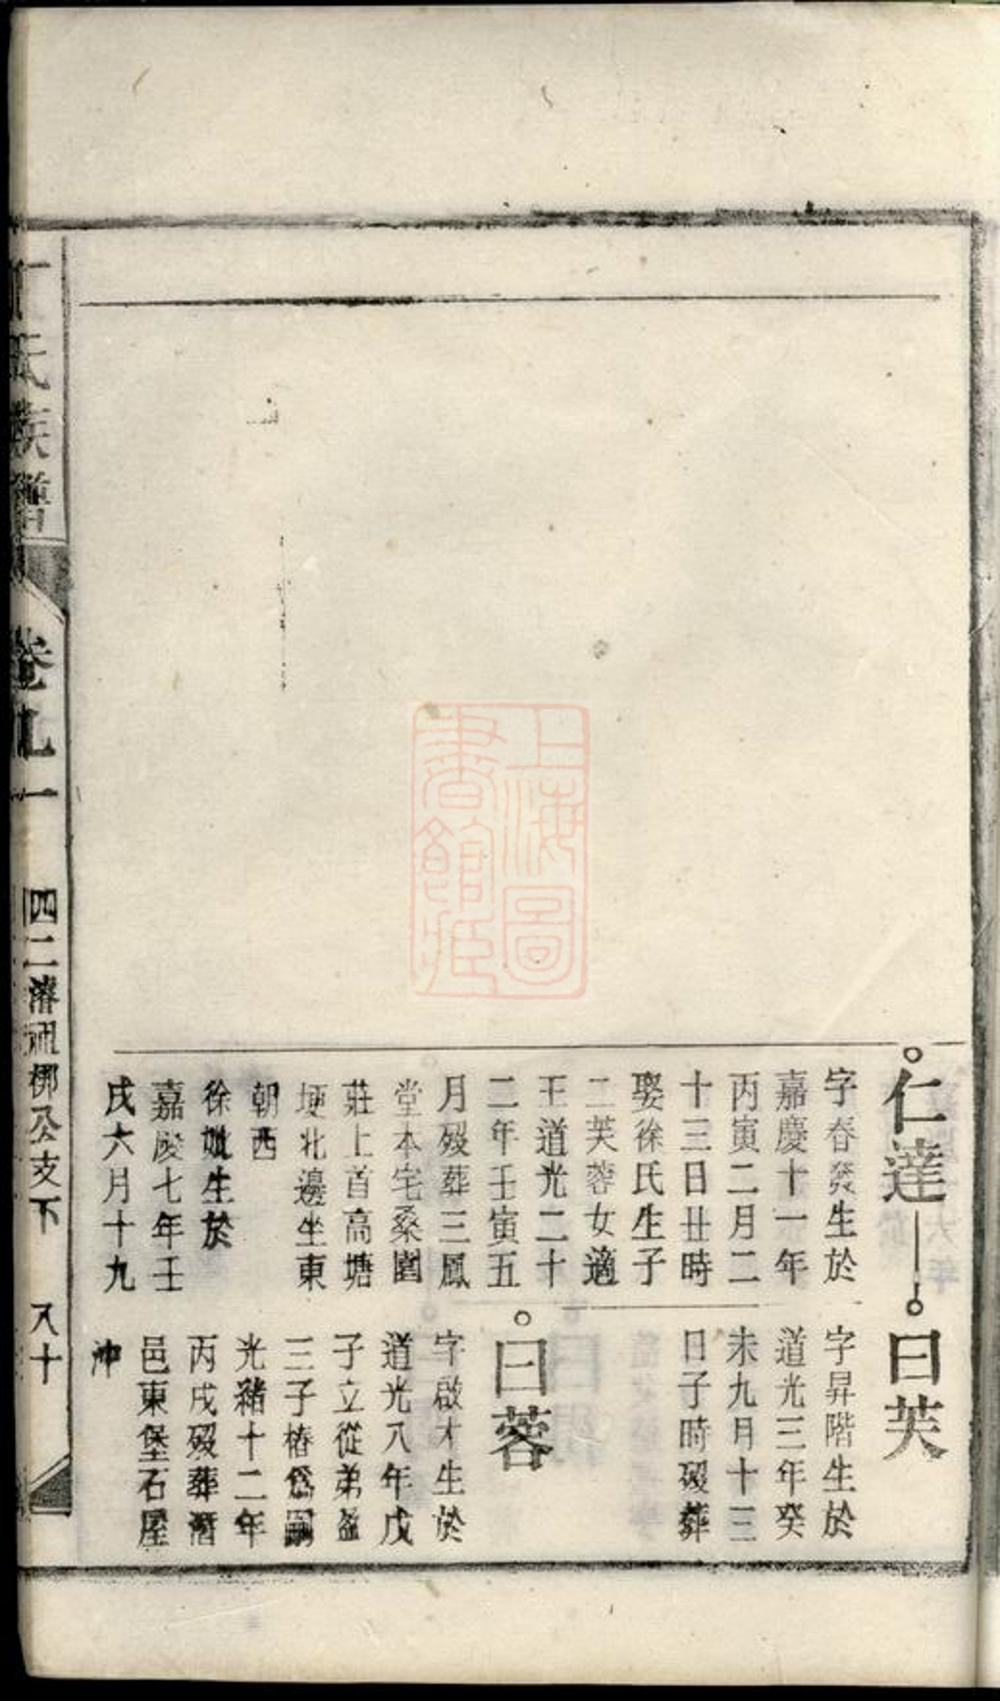 仁達
字春煲生於
嘉慶十一年
丙寅二月二
十三日丑時
娶徐氏生子
二芙蓉女適
王道光二十
二年壬寅五
月歿葬三鳳
堂本宅桑園
莊上首高塘
埂北邊坐東
朝西
徐妣生於
嘉慶七年壬
戌六月十九
曰芙
字昇階生於
道光三年癸
未九月十三
日子時歿葬
曰蓉
字啟才生於
道光八年戊
子立從弟盈
三子椿爲嗣
光緒十二年
丙戌歿葬潛
邑東堡石屋
冲
氏族譜
卷九一
四二濬公支下
八十
上海圖
書館藏